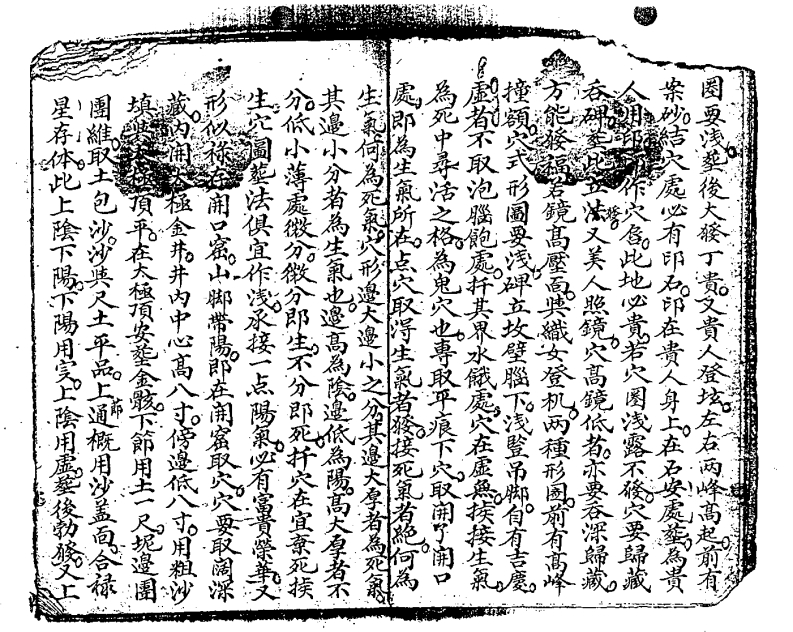 圈要浅。塟後大發丁貴。又貴人登坛。左右兩峰高起。前有
案砂結穴處。必有印石。印在貴人身上。在石安處塟。為貴
人用印。作穴。此地必貴。若穴圏浅露不發。穴要歸藏
吞碑塟。此立法。又美人照鏡。穴高鏡低者。亦要吞深歸藏。
方能發福。若鏡高壓面。與織女登机。兩種形圖。前有高峰
撞額。穴式形圖要浅。碑立坟壁腦下。浅竪吊脚。自有吉慶。
虛者不取泡腦飽處。扦其界水餓處。穴在虛無。挨接生氣。
為死中尋活之格。為鬼穴也。專取平痕下穴。取開了開口
處。即為生氣所在。点穴取淂生氣者發。接死氣者絕。何為
生氣。何為死氣。穴形邊大邊小之分。其邊大厚者為死氣。
其邊小分者為生氣也。邊高為陰。邊低為陽。高大厚者不
分。低小薄處微分。微分即生。不分即死。扦穴在宜棄死挨
生。穴圖塟法俱宜作浅。承接一点陽氣。必有富貴榮華。又
形似禄存開口窩。山脚帶陽。即在開窩取穴。穴要取濶深
藏。內開太極金井。井內中心高八寸。傍邊低八寸。用粗沙
填與太極頂平。在太極頂安塟金骸。下節用土一尺坭邊圍
團維。取土包沙。沙與尺土平品。上節通概用沙蓋面。合禄
星存体。此上陰下陽。下陽用实。上陰用虛。塟後勃發。又上